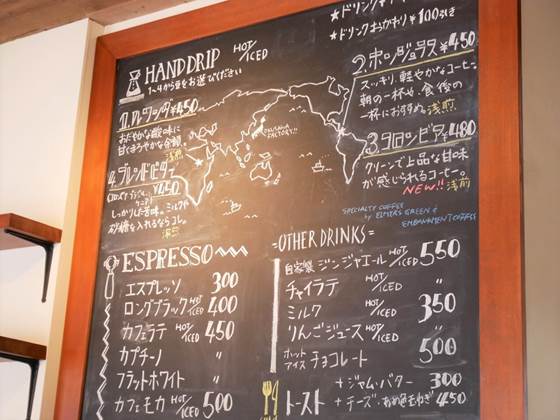 ★ドリンク
★ドリンクおかわり¥100引き
HANDDRIP HOT/ICED
1~4から豆をお選びください
1.ルワンダ ¥450
おだやかな酸味に
甘くまろやかな余韻。
浅煎
4.ブレンドビター
¥450
しっかりした苦味。ミルクや
砂糖を入れるならコレ。
深煎
OKINAWA
FACTORY!!
2.ホンジュラス ¥450
スッキリ、軽やかなコーヒー。
朝の一杯や、食後の
一杯におすすめ。浅煎
3.コロンビア ¥480
クリーンで上品な甘味
が感じられるコーヒー。
NEW!! 浅煎
SPECIALTY COFFEE
by ELMERS GREEN &
EMBANKMENT COFFEE
ESPRESSO
エスプレッソ 300
ロングブラック HOT/ICED 400
カフェラテ HOT/ICED 450
カプチーノ 〃
フラットホワイト 〃
カフェモカ HOT/ICED 500
=OTHER DRINKS=
自家製 ジンジャエール HOT/ICED 550
チャイラテ HOT/ICED 〃
ミルク HOT/ICED 350
りんごジュース HOT/ICED 〃
ホット アイス チョコレート 500
トースト +ジャム・バター 300
+チーズ 450